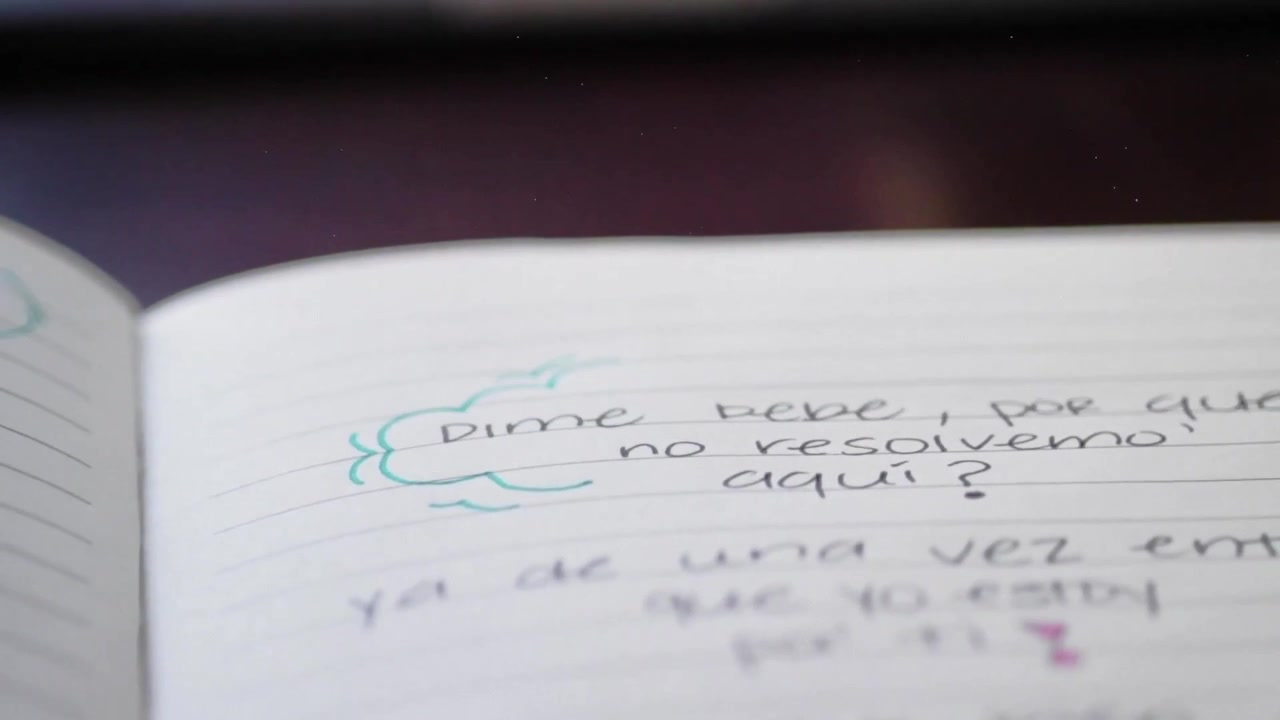 Dime bebe, por que
no resolvemo'
aquí?
ya de una vez ent
que yo estoy
por ti